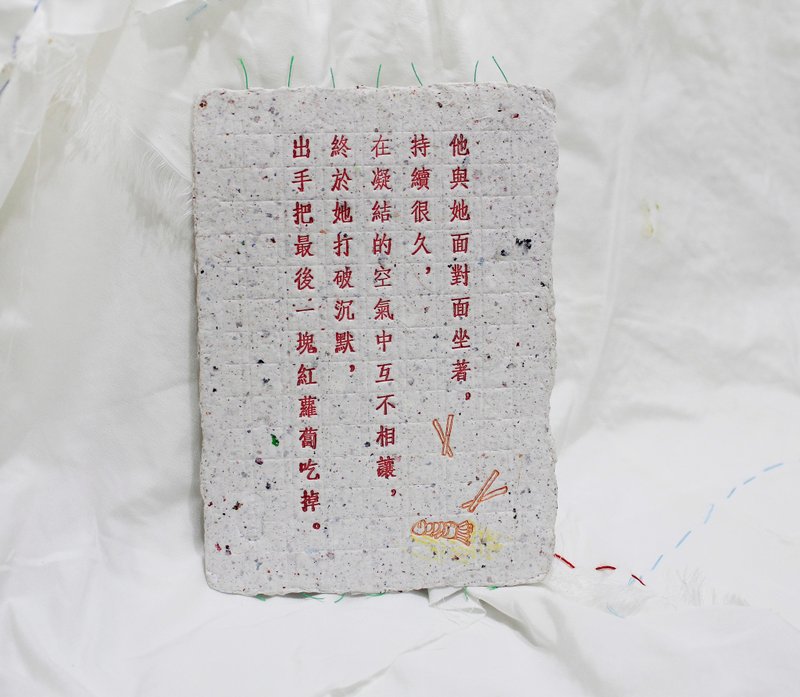 他與她面對面坐著，
持續很久，
在凝結的空氣中互不相讓，
終於她打破沉默，
出手把最後一塊紅蘿蔔吃掉。